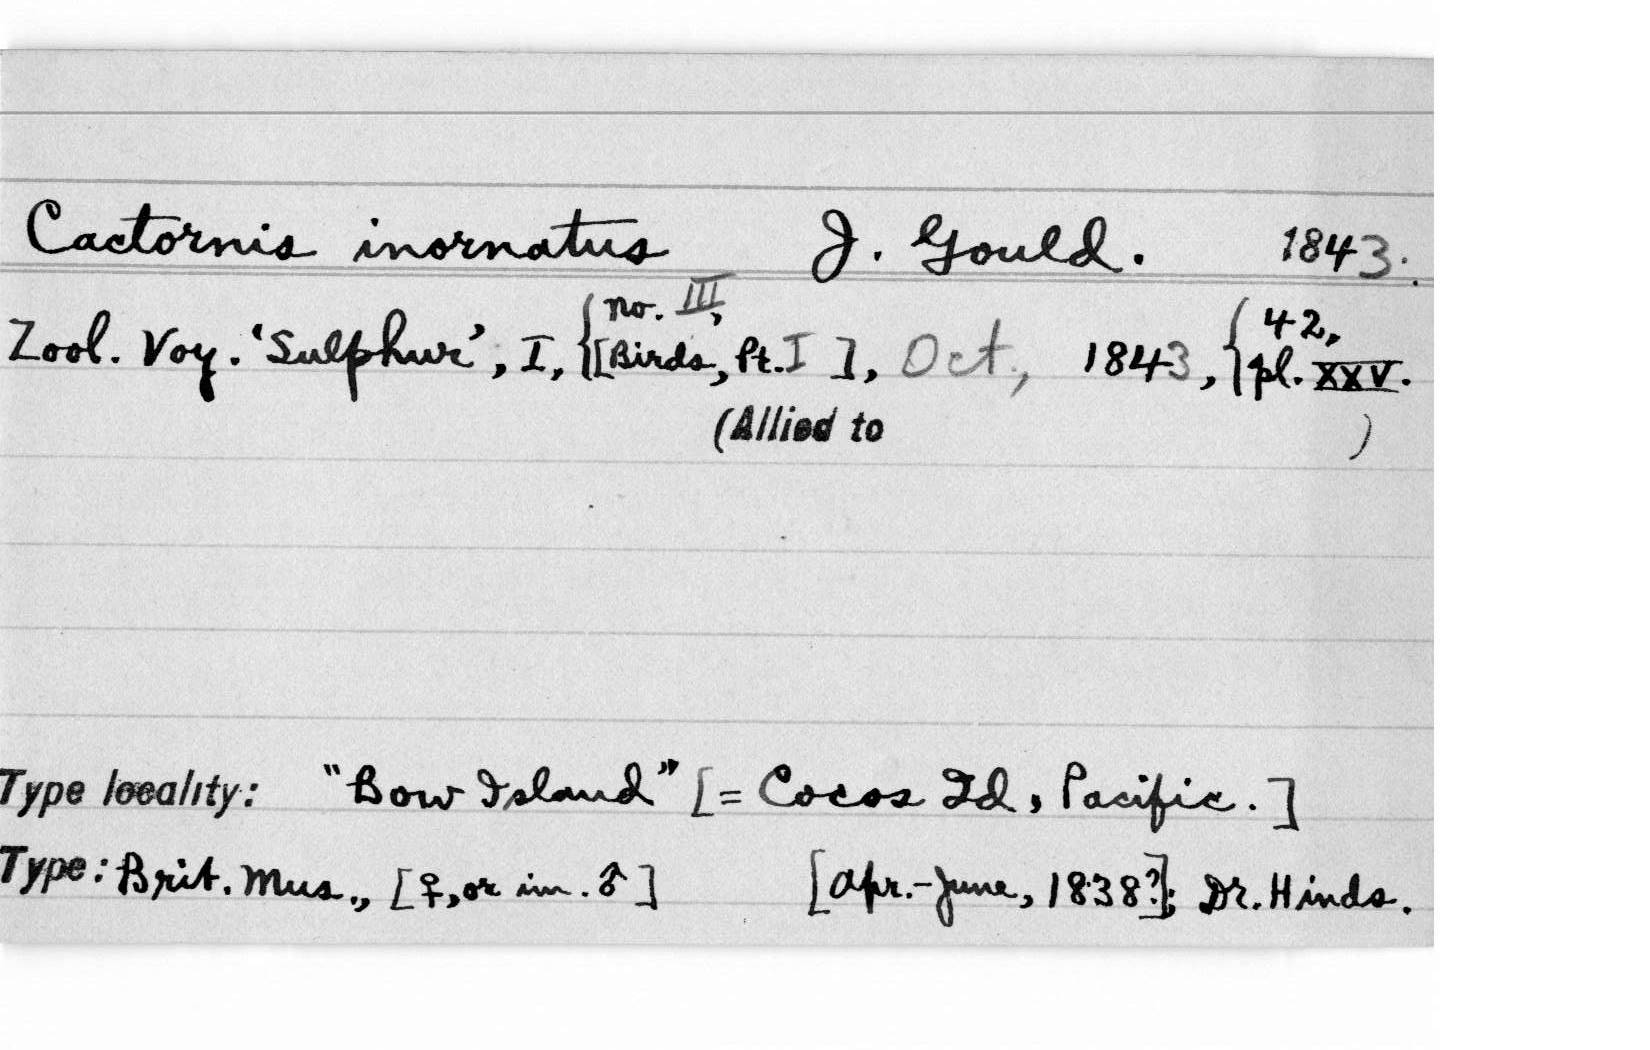 Cactornis inornatus J. Gould. 1843.
no. III, 42,
Zool. Voy. 'Sulphur', I, {[Birds, Pt. I ], Oct., 1843, {pl. XXV.
(Allied to )
Type locality: "Bow Island" [= Cocos Id, Pacific.]
Type: Brit. Mus., [♀, or im. ♂] [Apr.-June, 1838?]; Dr. Hinds.